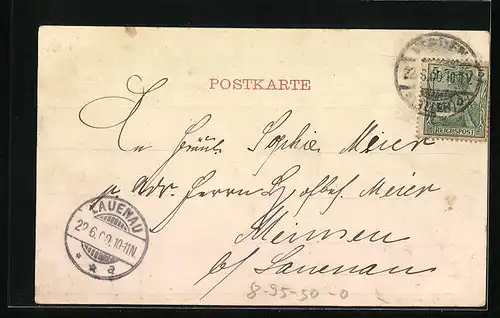 POSTKARTE
An Fräul. Sophie Meier
p. Adr. Herrn Hofbes. Meier
Meinsen
b/ Lauenau
LAUENAU
22.6.00.10-11N.
* * a
REICHSPOST
8-95-50-0